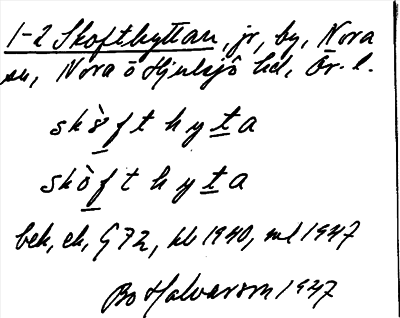 1-2 Skofthyttan, jr, by, Nora
sn, Nora o Hjulsjö hd, Ör. l.
skò̀f t h y t a
skòf t h y t a
bek, ek, G 72, kb 1940, ml 1947
Bo Halvarson 1947